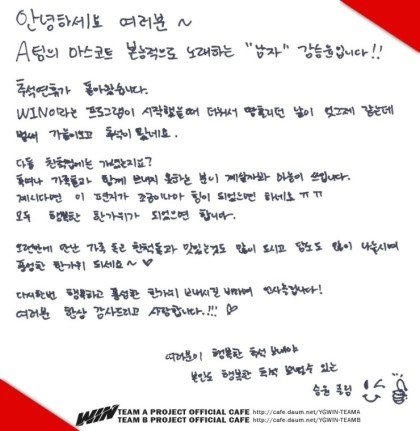 안녕하세요 여러분 ~
A팀의 마스코트 본능적으로 노래하는 "남자" 강승윤입니다!!
추석연휴가 돌아왔습니다.
WIN이라는 프로그램이 시작했을때 더워서 땀흘리던 날이 엊그제 같은데
벌써 가을이오고 추석이 왔네요.
다들 친척집에는 가셨는지요?
혹여나 가족들과 함께 보내지 못하는 분이 계실까봐 마음이 쓰입니다.
계시다면 이 편지가 조금이나마 힘이 되었으면 하네요 ㅠㅠ
모두 행복한 한가위가 되었으면 합니다.
오랜만에 만난 가족 혹은 친척들과 맛있는것도 많이 드시고 담소도 많이 나누시며
풍성한 한가위 되세요~ ♡
다시한번 행복하고 풍성한 한가위 보내시길 바라며 인사올립니다!
여러분 항상 감사드리고 사랑합니다.!!! ♡
여러분이 행복한 추석 보내야
본인도 행복한 추석 보낼수 있는
승윤 드림
WIN TEAM A PROJECT OFFICIAL CAFE http://cafe.daum.net/YGWIN-TEAMA
TEAM B PROJECT OFFICIAL CAFE http://cafe.daum.net/YGWIN-TEAMB